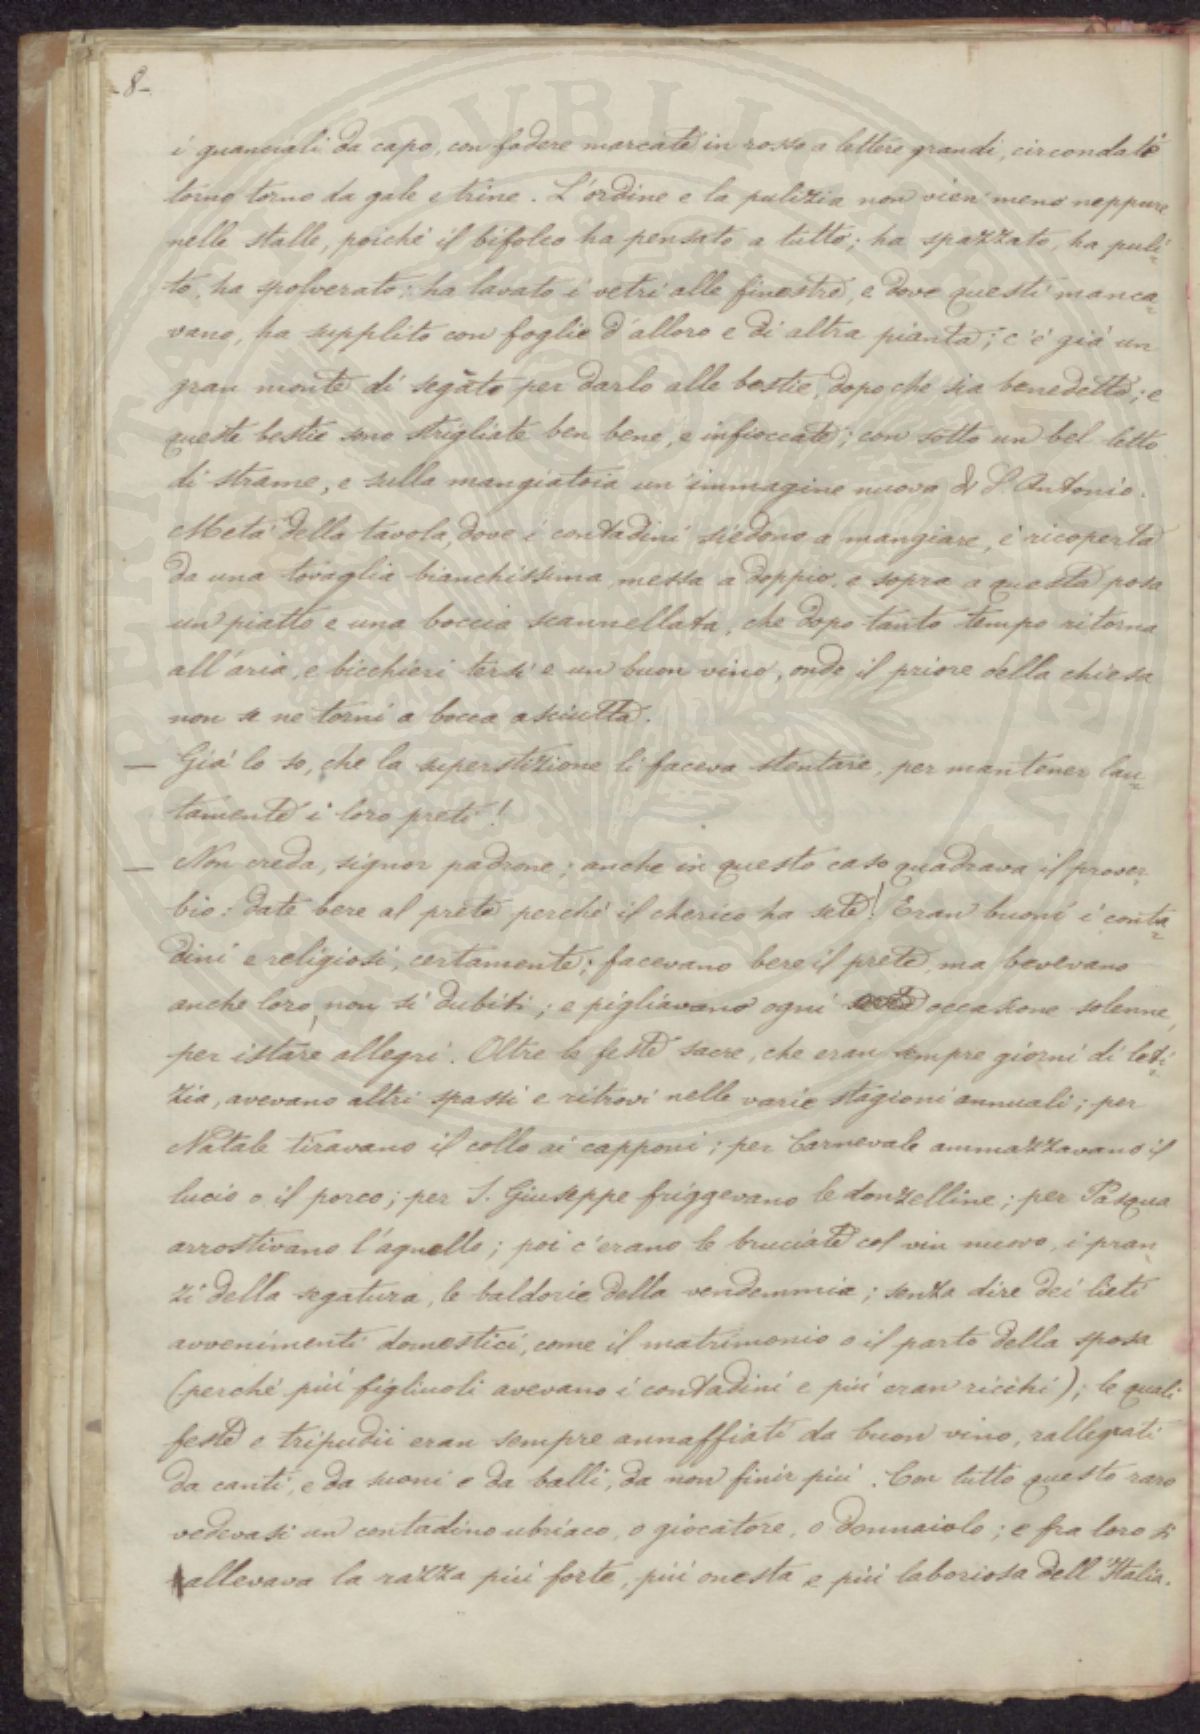 -8-
i guanciali da capo, con fodere marcate in rosso a lettere grandi, circondate
torno torno da gale e trine. L'ordine e la pulizia non vien meno neppure
nelle stalle, poiché il bifolco ha pensato a tutto; ha spazzato, ha puli-
to, ha spolverato; ha lavato i vetri alle finestre, e dove questi manca-
vano, ha supplito con foglie d'alloro e di altra pianta; c'è già un
gran monte di segato per darlo alle bestie, dopo che sia benedetto; e
queste bestie sono strigliate ben bene, e infioccate; con sotto un bel letto
di strame, e sulla mangiatoia un'immagine nuova di S. Antonio.
Metà della tavola, dove i contadini siedono a mangiare, è ricoperta
da una tovaglia bianchissima messa a doppio, e sopra a questa posa
un piatto e una boccia scannellata, che dopo tanto tempo ritorna
all'aria, e bicchieri tersi e un buon vino, onde il priore della chiesa
non se ne torni a bocca asciutta.
— Già lo so, che la superstizione li faceva stentare, per mantener lau-
tamente i loro preti!
— Non creda, signor padrone; anche in questo caso quadrava il prover-
bio: date bere al prete perché il cherico ha sete! Eran buoni i conta-
dini e religiosi, certamente; facevano bere il prete, ma bevevano
anche loro, non si dubiti; e pigliavano ogni occasione solenne,
per istare allegri. Oltre le feste sacre, che eran sempre giorni di leti-
zia, avevano altri spassi e ritrovi nelle varie stagioni annuali; per
Natale tiravano il collo ai capponi; per Carnevale ammazzavano il
lucio o il porco; per S. Giuseppe friggevano le donzelline; per Pasqua
arrostivano l'agnello; poi c'erano le bruciate col vin nuovo, i pran-
zi della segatura, le baldorie della vendemmia; senza dire dei lieti
avvenimenti domestici, come il matrimonio o il parto della sposa
(perché più figliuoli avevano i contadini e più eran ricchi); le quali
feste e tripudii eran sempre annaffiati da buon vino, rallegrati
da canti, e da suoni e da balli, da non finir più. Con tutto questo raro
vedevasi un contadino ubriaco, o giocatore, o donnaiolo; e fra loro si
allevava la razza più forte, più onesta e più laboriosa dell'Italia.
PVBLIC